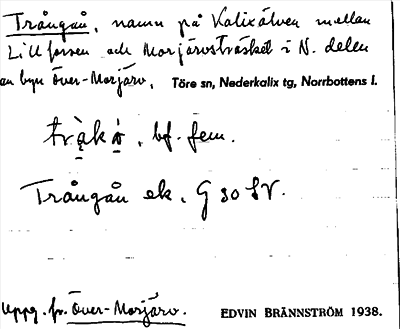 Trångån, namn på Kalixälven mellan
Lillforsen och Morjärvsträsket i N. delen
an byn Över-Morjärv. Töre sn, Nederkalix tg, Norrbottens l.
bf. fem.
Trångån ek. G 30 SV.
Uppg. fr. Över-Morjärv. EDVIN BRÄNNSTRÖM 1938.